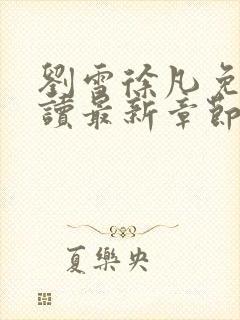 劉雪徐凡免
讀最新章節
夏樂央